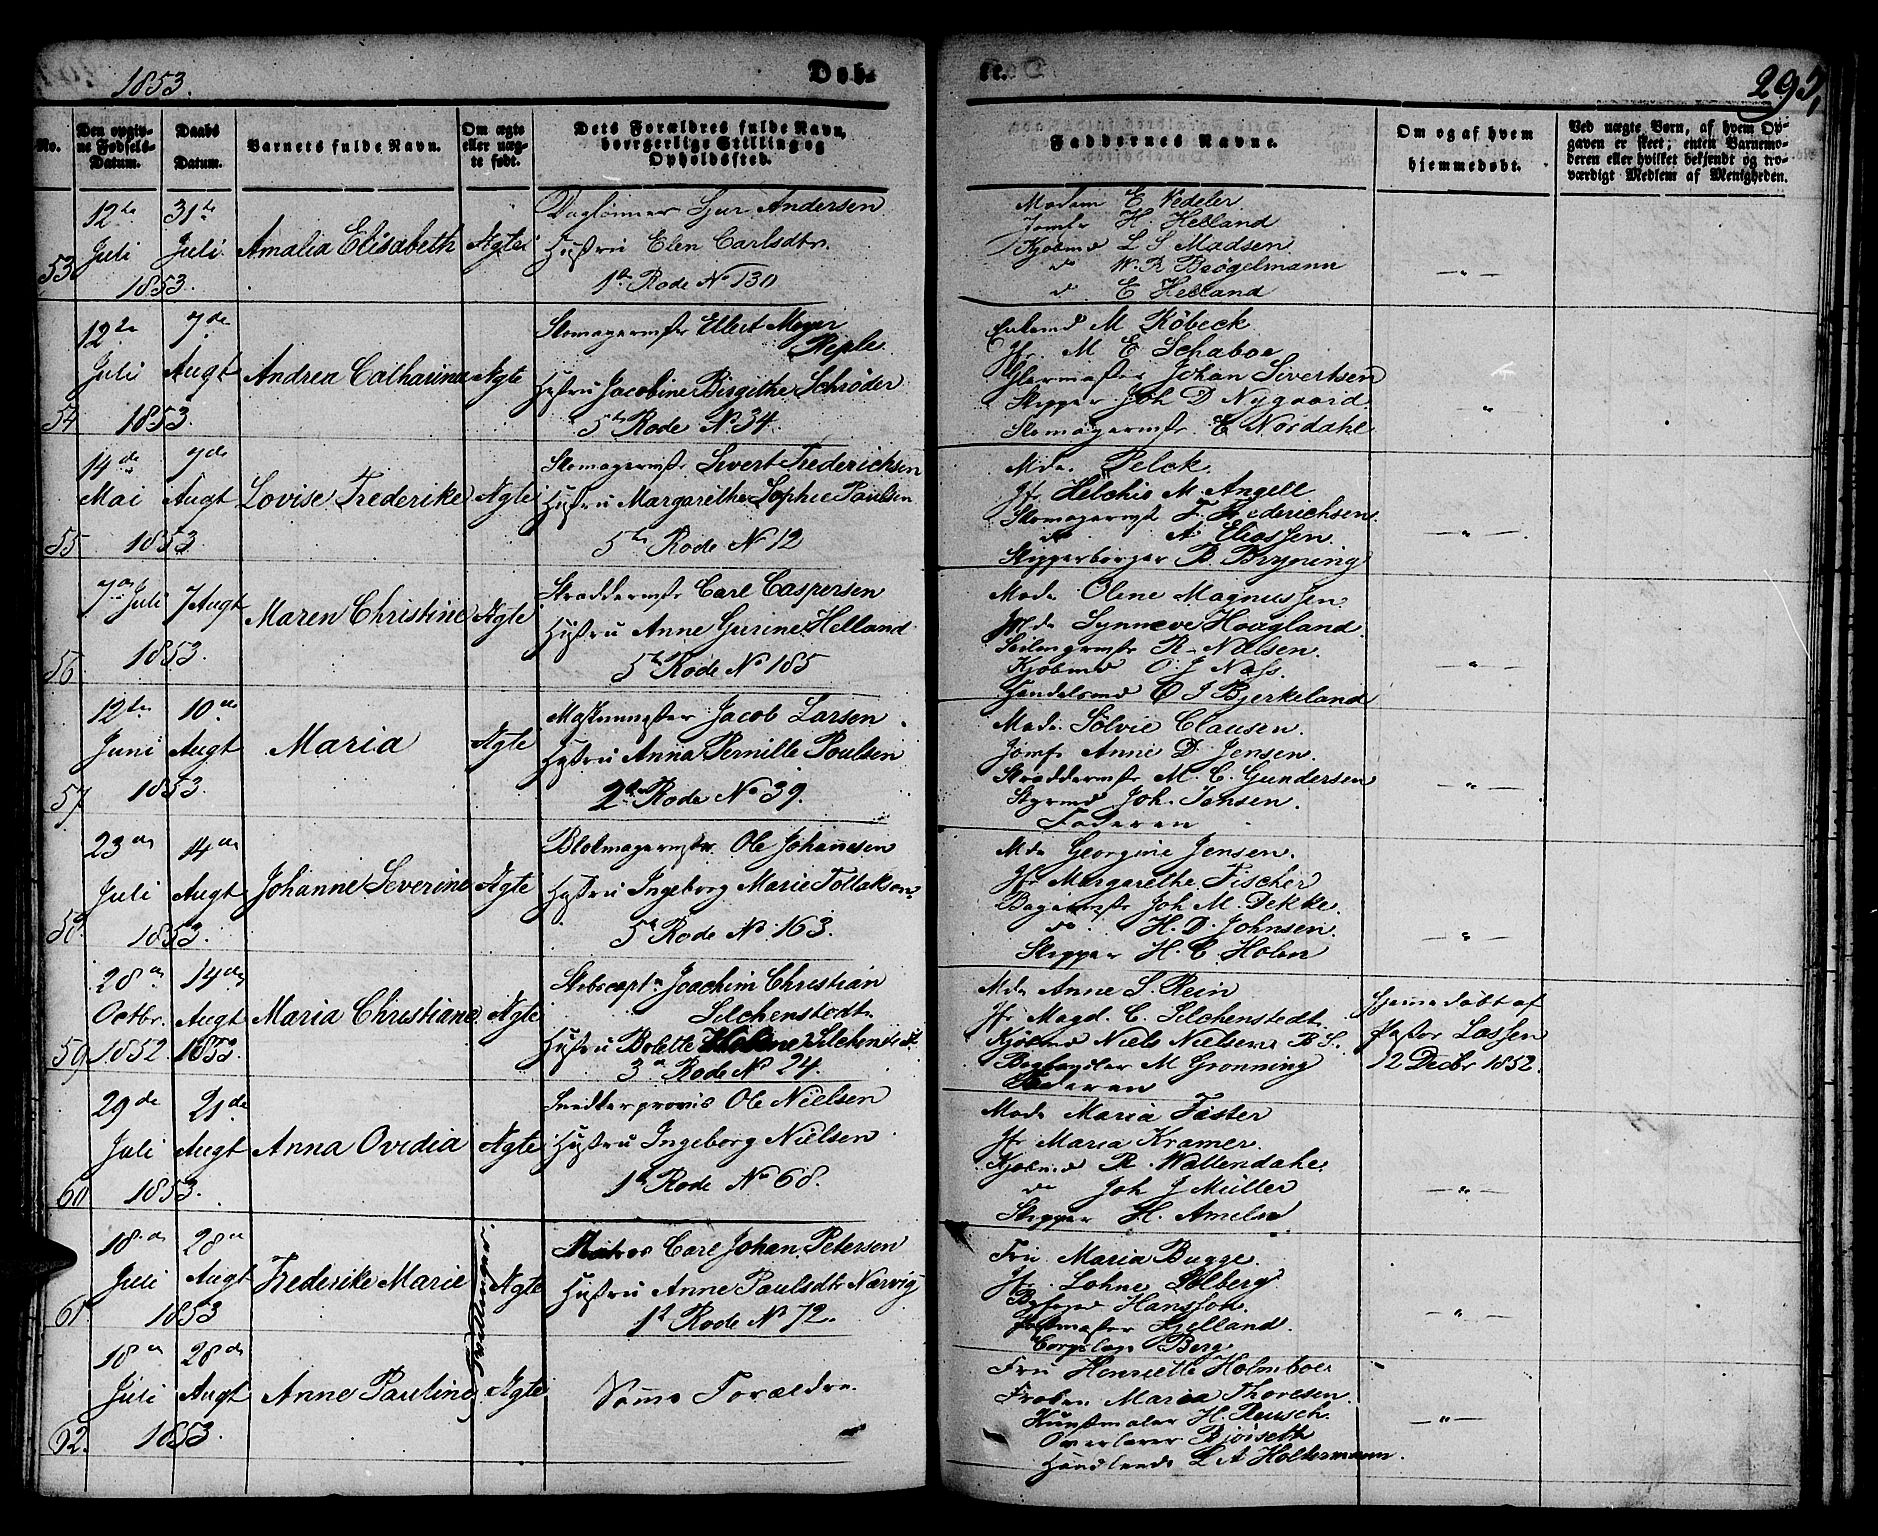 1853.
Døb-
te.
293,
No.
Den opgiv-
ne Fødsels-
Datum.
Daabs
Datum.
Barnets fulde Navn.
Om ægte
eller uæg-
te født.
Dets Forældres fulde Navn,
borgerlige Stilling og
Opholdssted.
Faddernes Navne.
Om og af hvem
hjemmedøbt.
Ved uægte Børn, af hvem Op-
gaven er skeet; enten Barnemo-
deren eller hvilket bekjendt og tro-
værdigt Medlem af Menigheden.
53
12te
Juli
31te
Juli
1853.
Amalia Elisabeth
Ægte
Daglønner Sjur Andersen
Hustru Elen Carlsdtr.
1te Rode No 130
Madam E Vedeler
Jomfr H. Helland
Kjøbmd L S Madsen
do W. R Brøgelmann
do E Helland
— " —
54
12te
Juli
7de
Augt
1853
Andrea Catharina
Ægte
Skomagermstr Ellert Meyer
Riple
Hustru Jacobine Birgithe Schrøder
5te Rode No 34.
M Købeck
Jfr. M E Schaboe
Glarmester Johan Sivertsen
Skipper Joh D Nygaard.
Skomagermstr. E Nordahl
— " —
55
14de
Mai
7de
Augt
1853.
Lovise Frederike
Ægte
Skomagermstr Sivert Frederichsen
Hustru Margarethe Sophie Paulsen
5te Rode No 12
Mde. Pelck.
Jfr Helchis M. Angell
Skomagermst F. Frederichsen.
do A Eliassen.
Skipperborger B Bryning
— " —
56
7de Juli
7 Augt
1853.
Maren Christine
Ægte
Skræddermstr Carl Caspersen
Hustru Anne Gurine Helland
5te Rode No 185
Made Oline Magnussen
Mde Synneve Hougland.
Seilmgrmstr R. Nilsen.
Kjøbmd O. J Næss.
Handelsmd O J Bjerkeland
— " —
57
12te
Juni
10de
Augt
1853.
Maria
Ægte
Mastemester Jacob Larsen
Hustru Anna Pernille Poulsen
2de Rode No 39.
Made. Sølvie Clausen.
Jomfr Anne D. Jensen.
Skræddermstr M. C. Gundersen
Styrmd Joh. Jansen.
Faderen
— " —
58
23de
Juli
14de
Augt
1853.
Johanne Severine
Ægte
Blokmagermstr Ole Johannesen
Hustru Ingeborg Marie Tollaksen
5te Rode No 163.
Mde Georgine Jensen.
Jfr Margarethe Fischer
Bagermstr Joh M. Dekke.
do H. D. Johnsen.
Skipper H. C. Holm
— " —
59
28de
Octbr.
1852.
14de
Augt
1853.
Maria Christiane
Ægte
Skibscaptn Joachim Christian
Selchenstedt
Hustru Bolette Selchenstedt
3de Rode No 24.
Mde Anne S. Rein
Jfr Magd. C. Selchenstedt
Kjøbmd Niels Nielsen B S.
Boghandler M Grønning
Faderen
Hjemmedøbt af
Pastor Lassen
12 Decbr 1852.
60
29de
Juli
21de
Augt
1853.
Anna Ovidia
Ægte
Snedkerprovis Ole Nielsen
Hustru Ingeborg Nielsen
1te Rode No 68.
Made Maria Faster
Jfr Maria Kramer.
Kjøbmd R. Wallendahl
do Joh J Müller
Skipper H. Ameln
— " —
61
18de
Juli
28de
Augt
1853
Frederike Marie
Tvillinger
Ægte
Matros Carl Johan Petersen
Hustru Anne Paulsdtr Narvig
1te Rode No 72.
Fru Maria Bugge.
Jfr. Lohne Solberg
Byfoged Hansson.
Postmester Kjelland.
Corpslæge Berg
— " —
62.
18de
Juli
28de
Augt
1853.
Anne Pauline
Ægte
Samme Forældre
Fru Henriette Holmboe
Frøken Maria Thoresen.
Kunstmaler H. Reusch.
Overlærer Bjørseth
Handlende L A Holtermann.
— " —